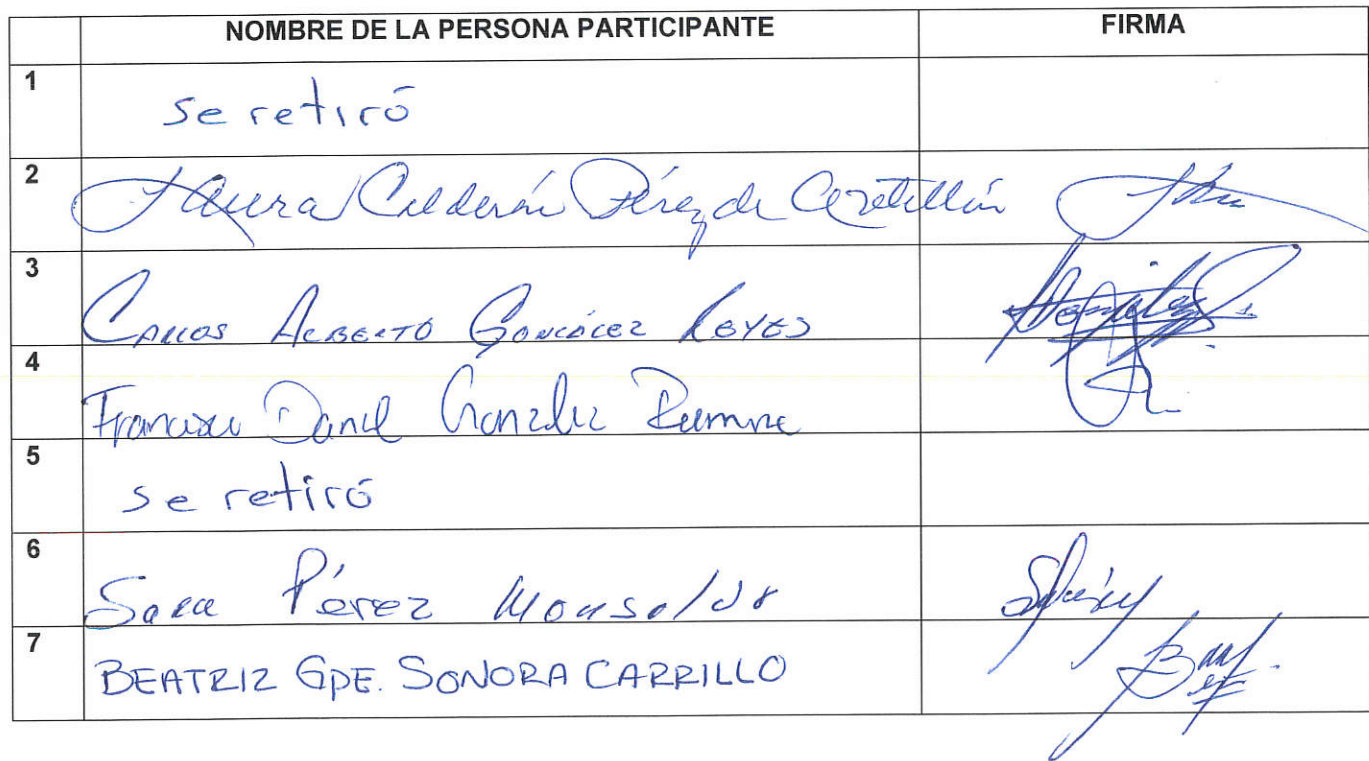 NOMBRE DE LA PERSONA PARTICIPANTE FIRMA
1 se retiró
2 Laura Calderón Pérez de
3 CARLOS ALBERTO GONZÁLEZ REYES
4 Francisco Daniel González
5 se retiró
6 Sara Pérez
7 BEATRIZ GPE. SONORA CARRILLO